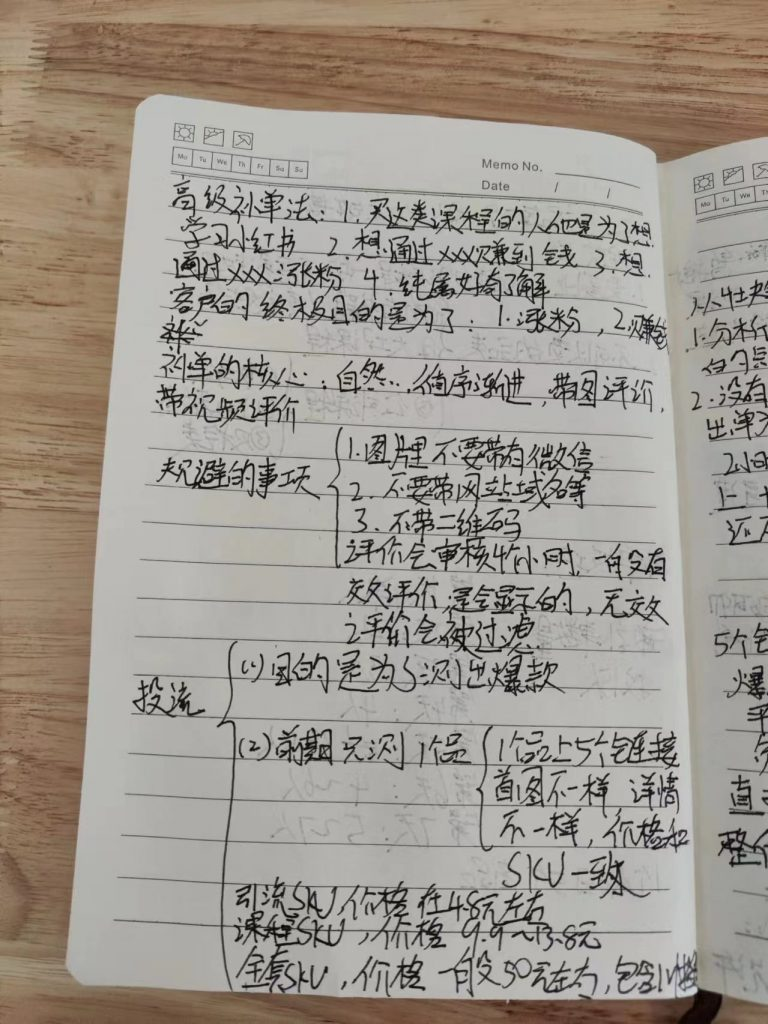 Mo Tu We Th Fr Sa Su
Memo No.
Date / /
高级补单法：1. 买这类课程的人他是为了想
学习小红书 2. 想通过xxx赚到钱 3. 想
通过xxx涨粉 4. 纯属好奇了解
客户的终极目的是为了：1. 涨粉，2. 赚钱
补单的核心：自然，循序渐进，带图评价，
带视频评价
规避的事项
1. 图片里不要带有微信
2. 不要带网站域名等
3. 不带二维码
评价会审核4个小时，一般有
效评价，是会显示的，无效
评价会被过滤
投流
(1) 目的是为了测出爆款
(2) 前期只测1个品
1个品上5个链接
首图不一样 详情
不一样，价格和
SKU一致
引流SKU，价格在4.8元左右
课程SKU，价格9.9~13.8元
全套SKU，价格一般50元左右，包含
Mo Tu We Th
1. 分析
2. 没有
出单
2小时
5个链
爆
平
直
整个